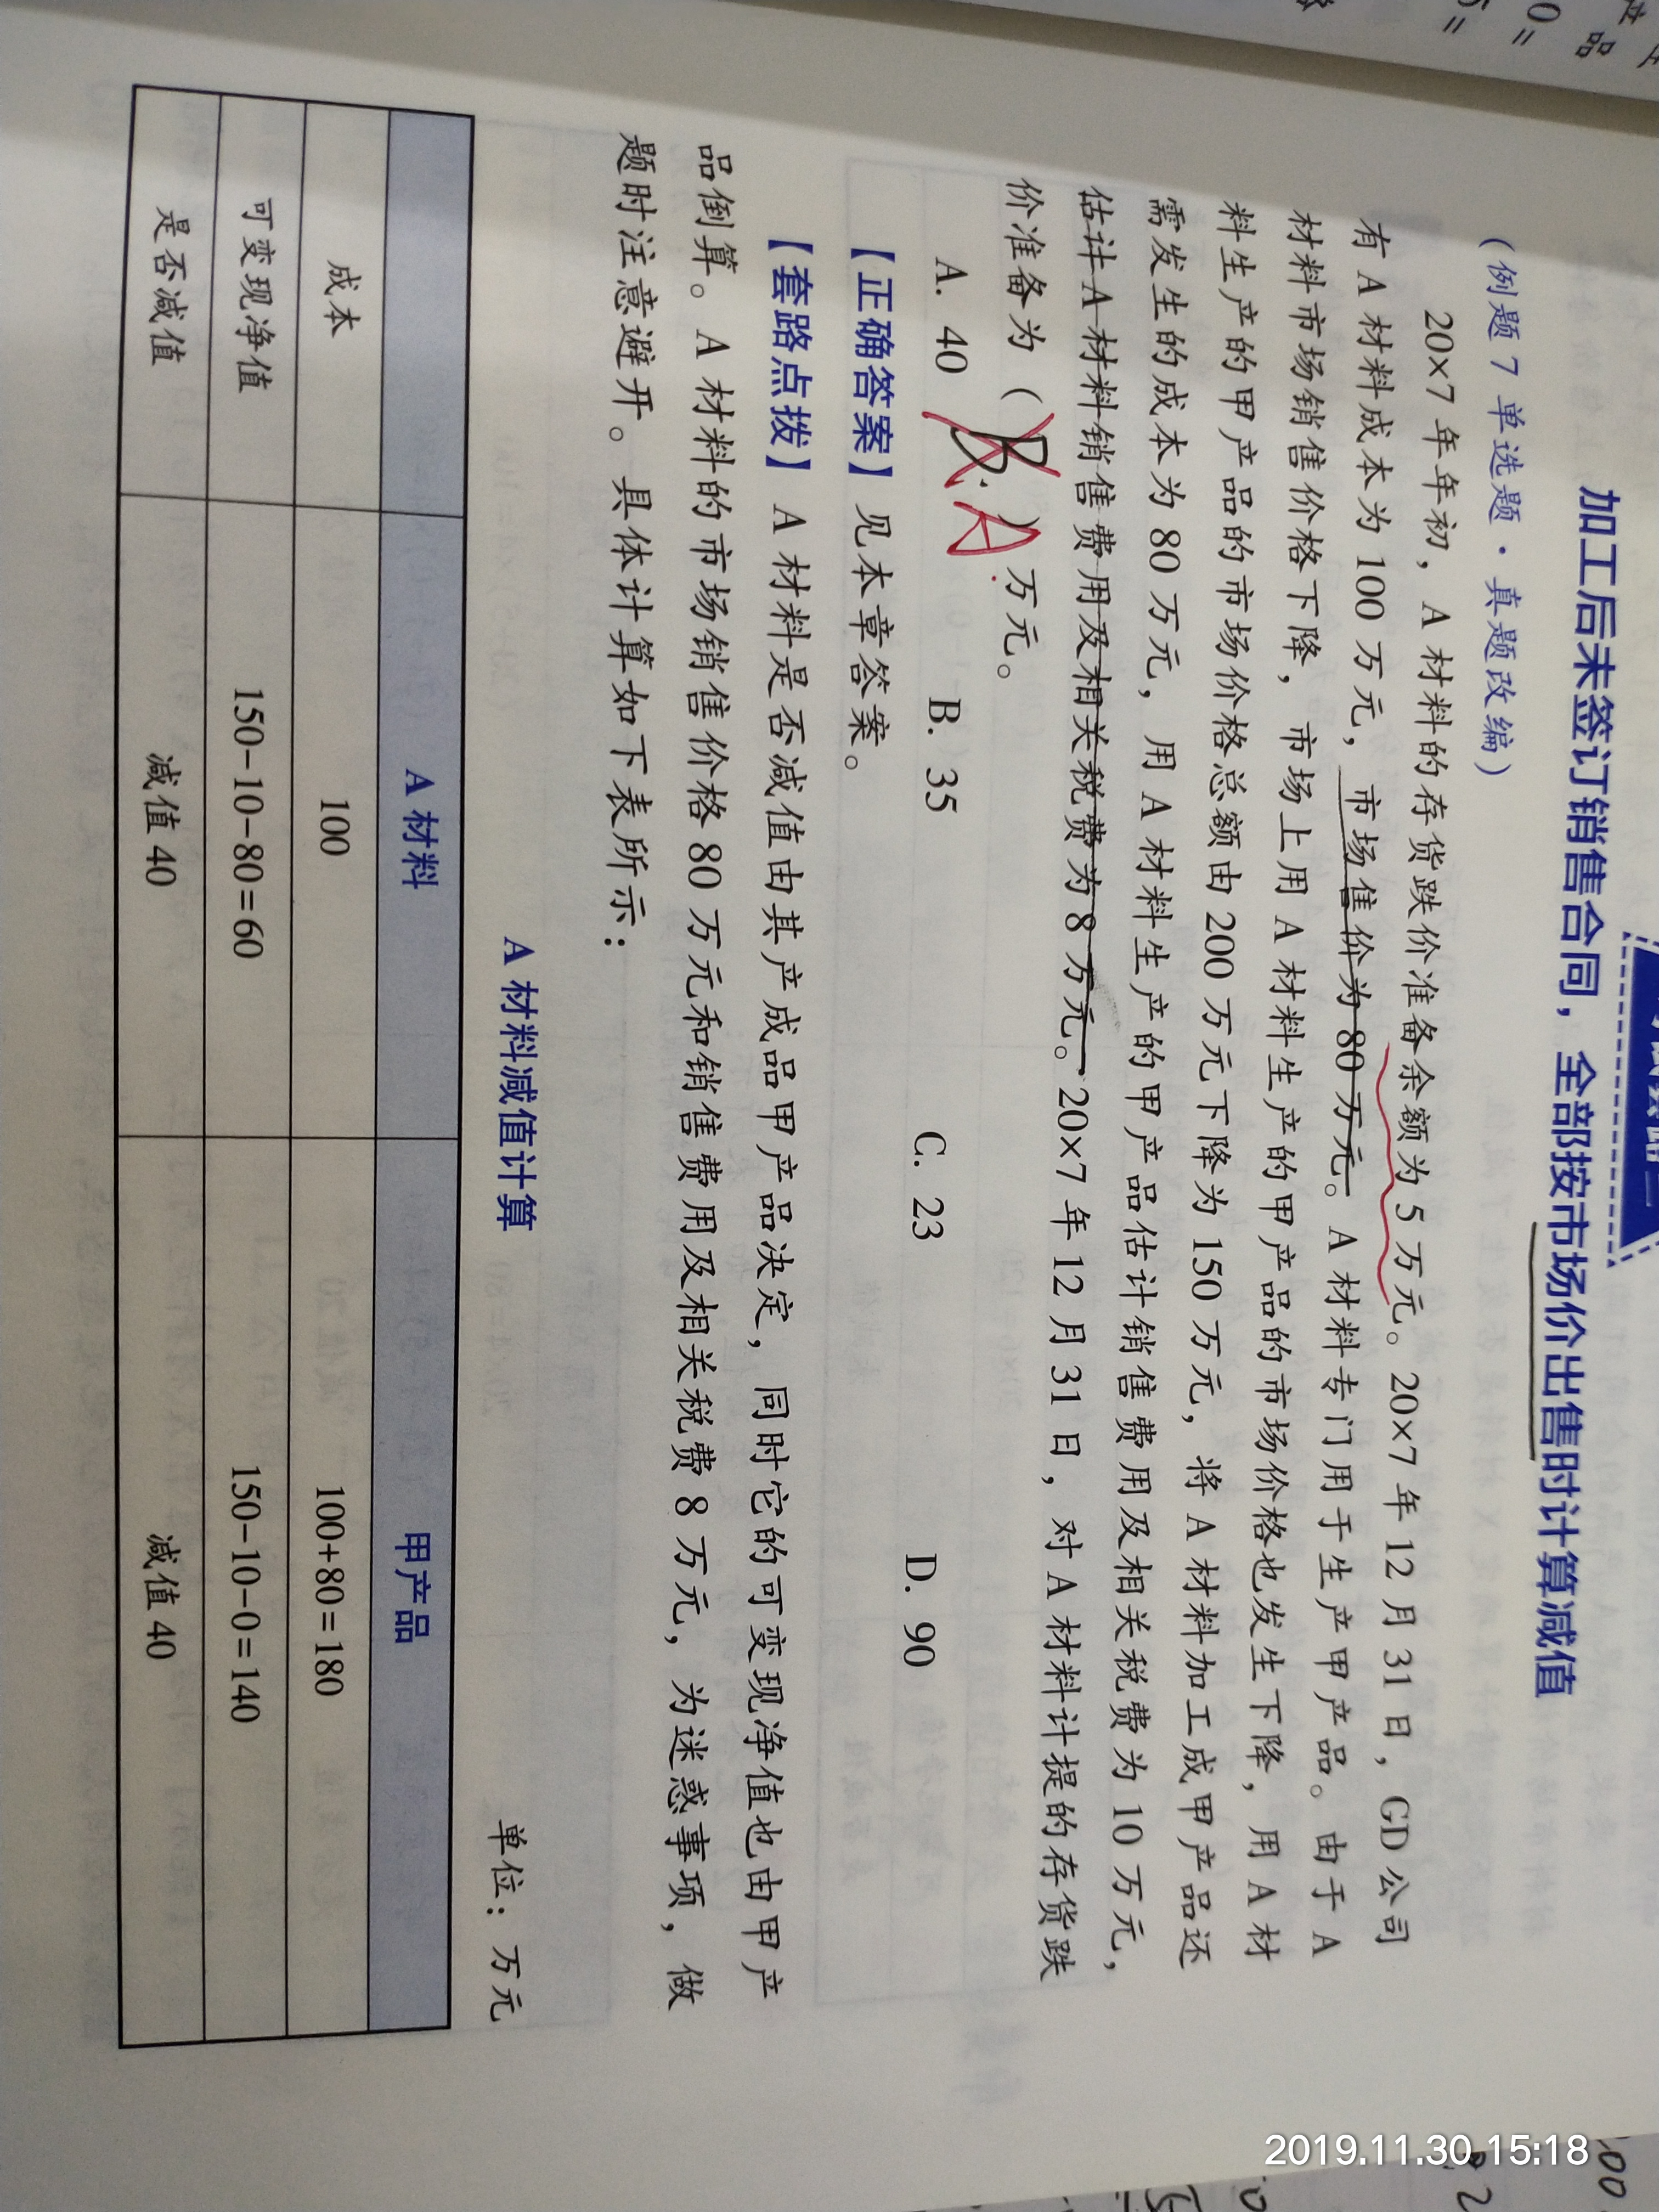 加工后未签订销售合同，全部按市场价出售时计算减值
（例题 7 单选题·真题改编）
20×7 年年初，A 材料的存货跌价准备余额为 5 万元。20×7 年 12 月 31 日，GD 公司
有 A 材料成本为 100 万元，市场售价为 80 万元。A 材料专门用于生产甲产品。由于 A
材料市场销售价格下降，市场上用 A 材料生产的甲产品的市场价格也发生下降，用 A 材
料生产的甲产品的市场价格总额由 200 万元下降为 150 万元，将 A 材料加工成甲产品还
需发生的成本为 80 万元，用 A 材料生产的甲产品估计销售费用及相关税费为 10 万元，
估计 A 材料销售费用及相关税费为 8 万元。20×7 年 12 月 31 日，对 A 材料计提的存货跌
价准备为（B. A）万元。
A. 40 B. 35 C. 23 D. 90
【正确答案】见本章答案。
【套路点拨】A 材料是否减值由其产成品甲产品决定，同时它的可变现净值也由甲产
品倒算。A 材料的市场销售价格 80 万元和销售费用及相关税费 8 万元，为迷惑事项，做
题时注意避开。具体计算如下表所示：
A 材料减值计算
单位：万元
A 材料 甲产品
成本 100 100+80=180
可变现净值 150-10-80=60 150-10-0=140
是否减值 减值 40 减值 40
2019.11.30 15:18